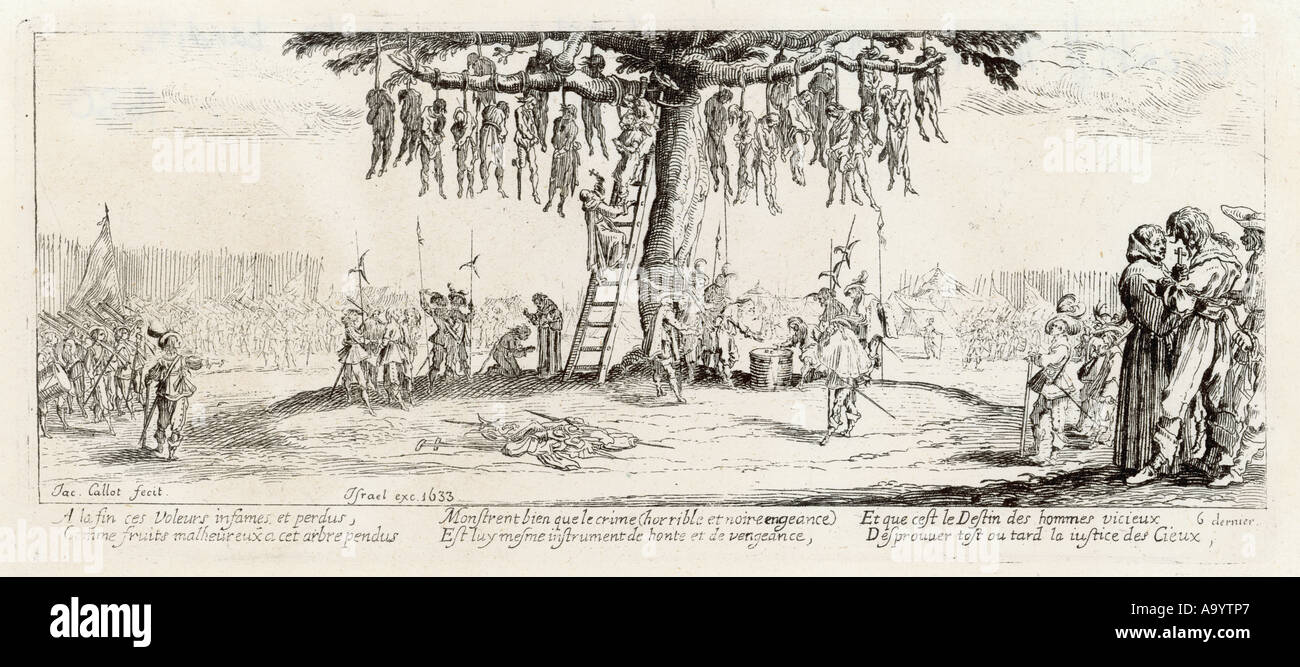 Iac. Callot fecit.
Israel exc. 1633
A la fin ces Voleurs infames et perdus,
Comme fruits malheureux a cet arbre pendus
Monstrent bien que le crime (horrible et noire engeance)
Est luy mesme instrument de honte et de vengeance,
Et que cest le Destin des hommes vicieux
Desprouuer tost ou tard la iustice des Cieux,
6 dernier.
alamy
a
alamy
Image ID: A9YTP7
www.alamy.com